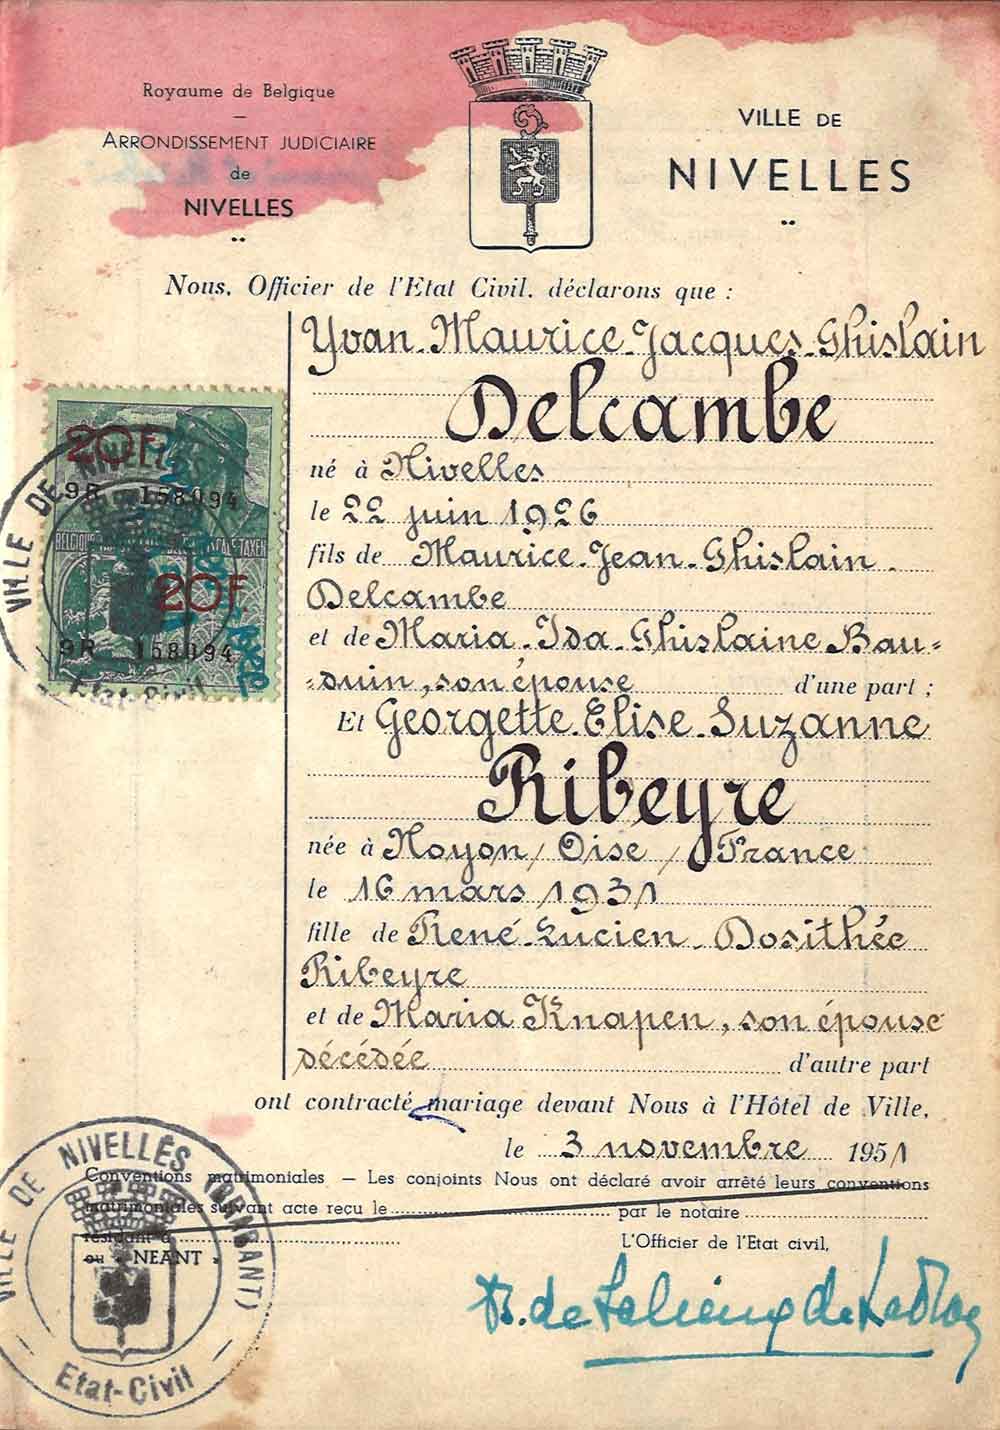 Royaume de Belgique
ARRONDISSEMENT JUDICIAIRE
de
NIVELLES
VILLE DE
NIVELLES
Nous, Officier de l'Etat Civil, déclarons que :
Yvan Maurice Jacques Ghislain
Delcambe
né à Nivelles
le 22 juin 1926
fils de Maurice Jean Ghislain
Delcambe
et de Maria Ida Ghislaine Bau-
-duin, son épouse d'une part ;
Et Georgette Elise Suzanne
Ribeyre
née à Noyon / Oise / France
le 16 mars 1931
fille de René Lucien Dosithée
Ribeyre
et de Maria Knapen, son épouse
décédée d'autre part
ont contracté mariage devant Nous à l'Hôtel de Ville,
le 3 novembre 1951
Conventions matrimoniales — Les conjoints Nous ont déclaré avoir arrêté leurs conventions
matrimoniales suivant acte reçu le par le notaire
résidant à
ou « NEANT »
L'Officier de l'Etat civil,
20F.
9R 158094
20F.
9R 158094
VILLE DE NIVELLES
Etat-Civil
VILLE DE NIVELLES (BRABANT)
Etat-Civil